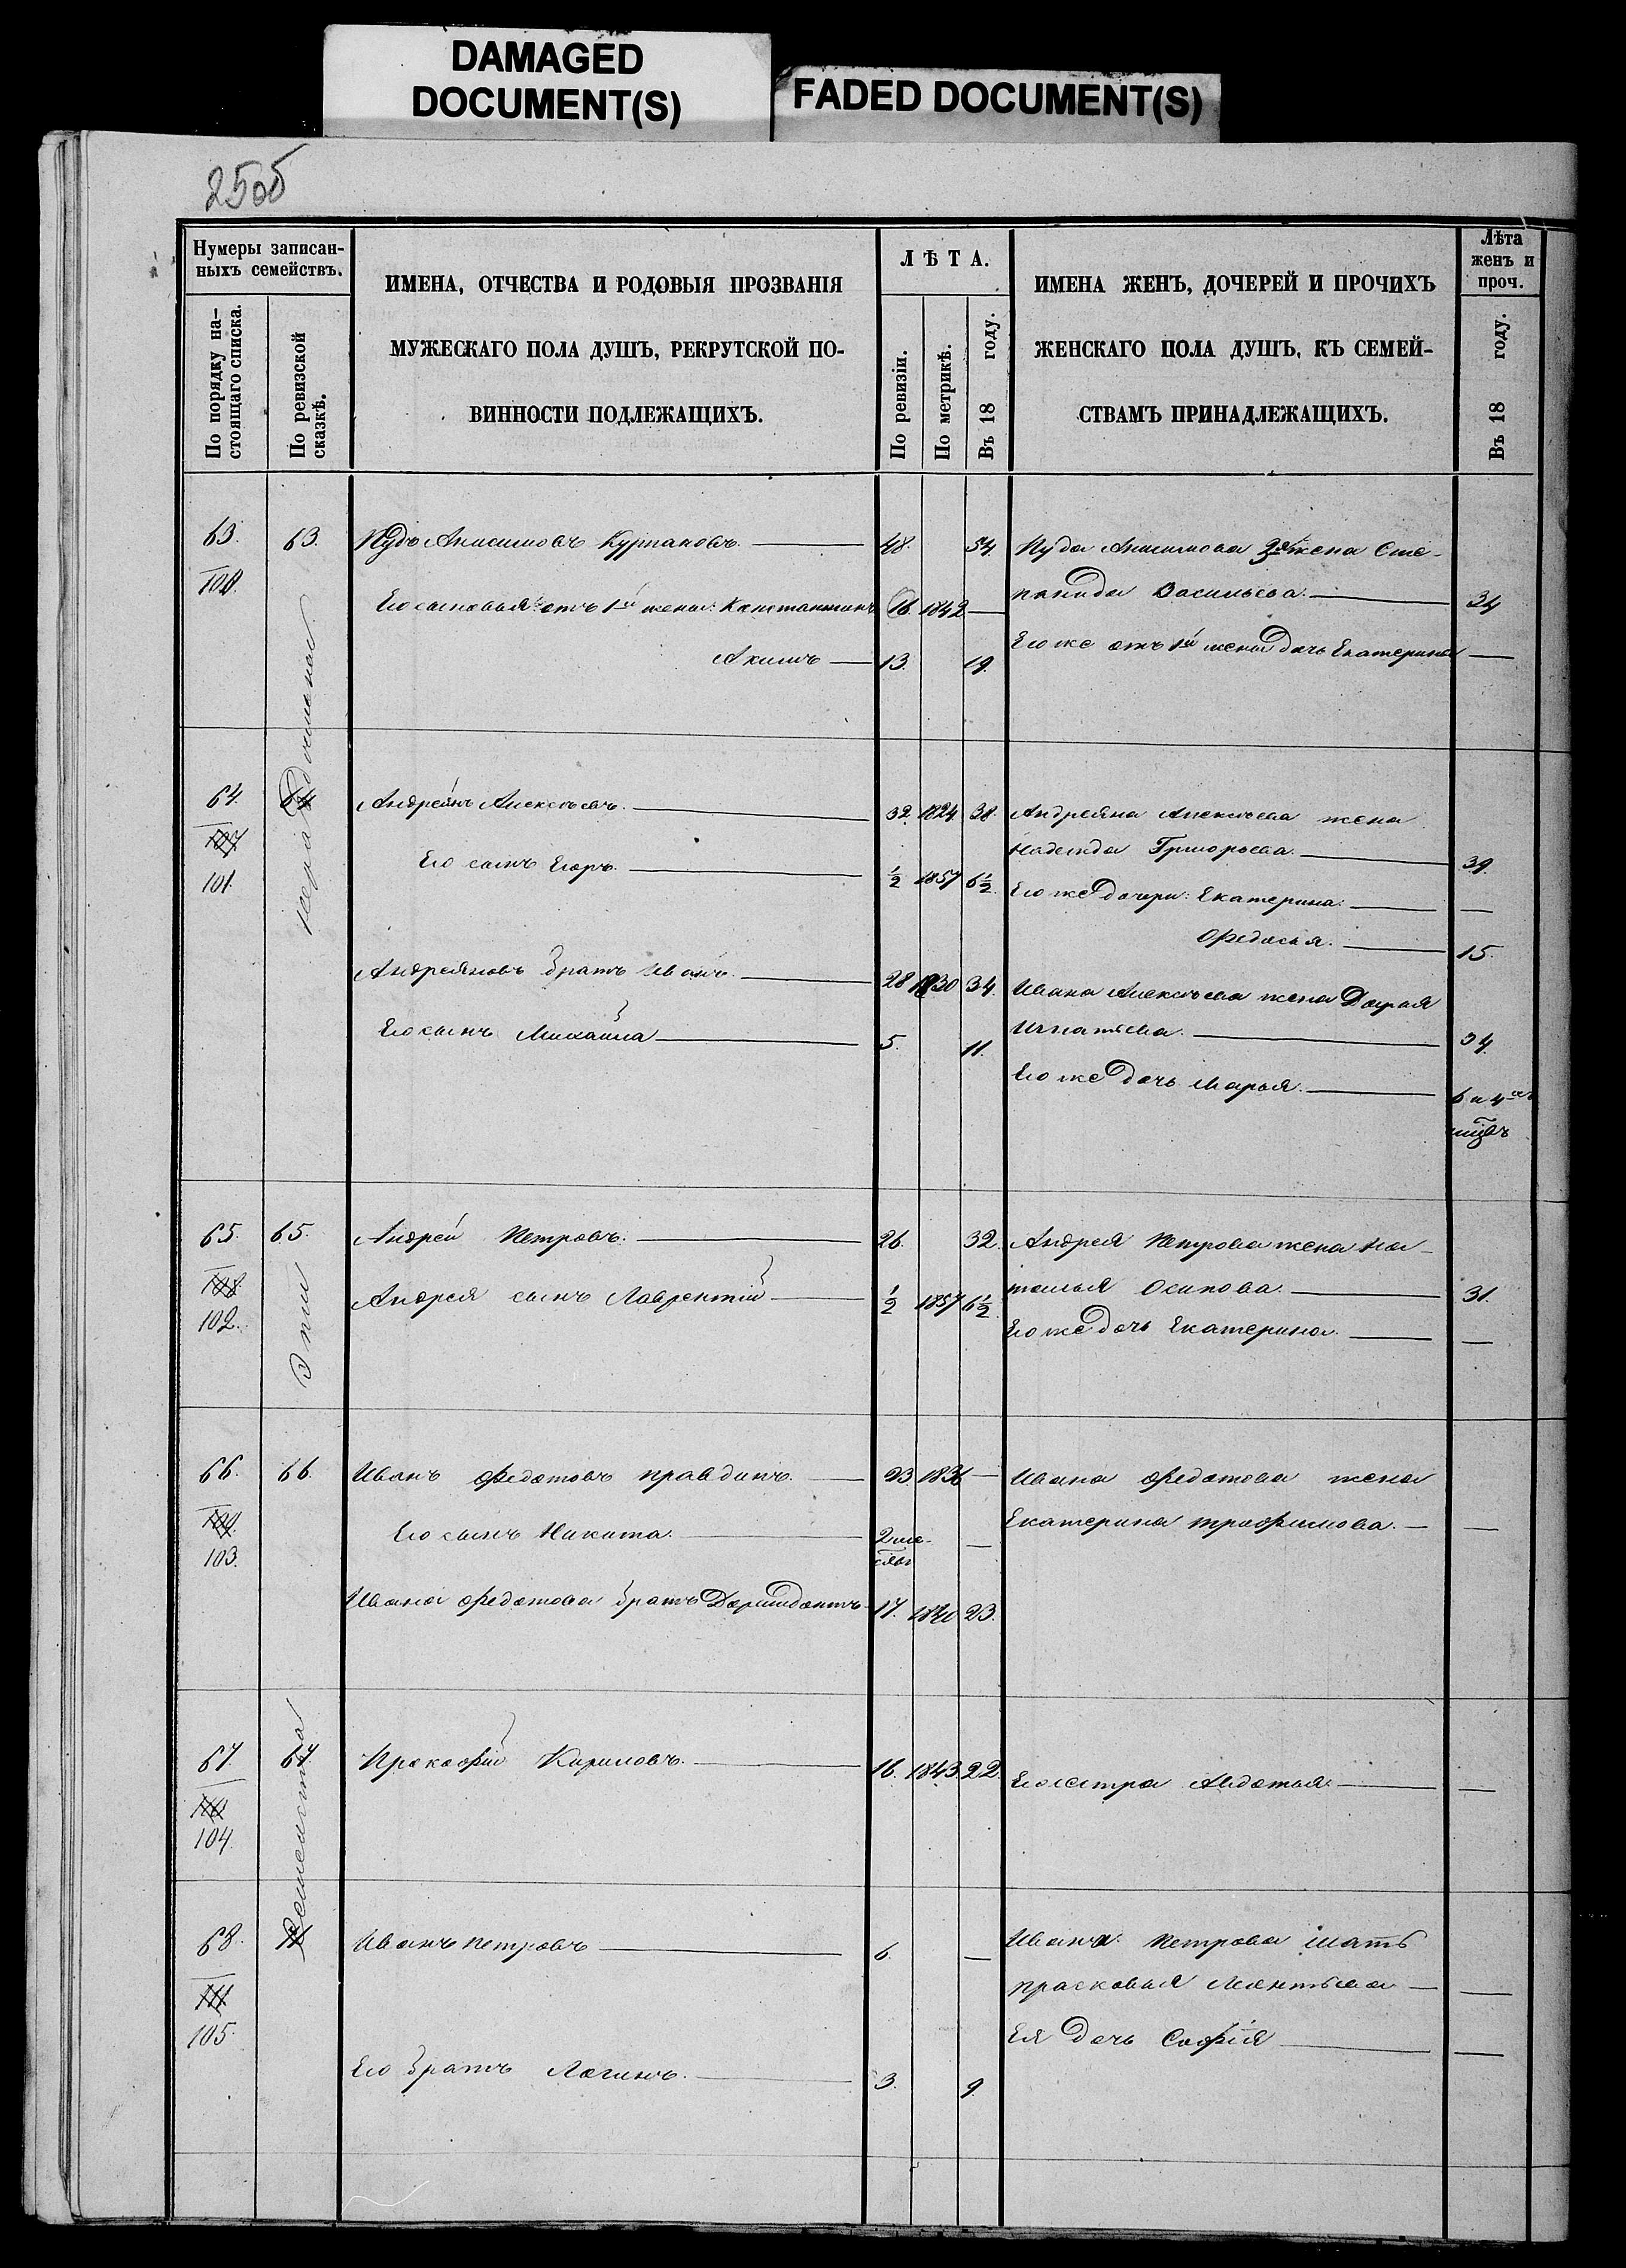 DAMAGED
DOCUMENT(S)
FADED DOCUMENT(S)
25об
Нумеры записан-
ныхъ семействъ.
По порядку на-
стоящаго списка.
По ревизской
сказкѣ.
ИМЕНА, ОТЧЕСТВА И РОДОВЫЯ ПРОЗВАНІЯ
МУЖЕСКАГО ПОЛА ДУШЪ, РЕКРУТСКОЙ ПО-
ВИННОСТИ ПОДЛЕЖАЩИХЪ.
ЛѢТА.
По ревизіи.
По метрикѣ.
Въ 18 году.
ИМЕНА ЖЕНЪ, ДОЧЕРЕЙ И ПРОЧИХЪ
ЖЕНСКАГО ПОЛА ДУШЪ, КЪ СЕМЕЙ-
СТВАМЪ ПРИНАДЛЕЖАЩИХЪ.
Лѣта
женъ и
проч.
Въ 18 году.
63. 63. Пудъ Анисимовъ Курпановъ. 48. 54. Пуда Анисимова 2я жена Сте-
100. панида Васильева. 34
Его сыновья: отъ 1й жены: Константинъ 16. 1842
Его же отъ 1й жены дочь Екатерина
Акимъ 13. 19.
64. 64 Андреянъ Алексѣевъ. 32. 1824 38. Андреяна Алексѣева жена
Надежда Григорьева. 39.
107.
101.
Его сынъ Егоръ. ½ 1857 6½. Его же дочери: Екатерина.
Ѳедосья. 15.
Андреяновъ братъ Иванъ. 28 1830 34. Ивана Алексѣева жена Дарья
Игнатьева. 34.
Его сынъ Михаила 5. 11.
Его же дочь Марья. 6 и 4
65. 65. Андрей Петровъ. 26. 32. Андрея Петрова жена На-
талья Осипова. 31.
108.
102.
Андрея сынъ Лаврентій ½ 1857 6½
Его же дочь Екатерина.
66. 66. Иванъ Ѳедотовъ Правдинъ. 23. 1836 Ивана Ѳедотова жена
Екатерина Трофимова.
109.
103.
Его сынъ Никита. 2 мѣ-
сяц
Ивана Ѳедотова братъ Доримедонтъ 17. 1840 23.
67. 67. Прокофій Кириловъ. 16. 1843. 22.
Его сестра Авдотья.
110
104.
68. Иванъ Петровъ 6. Ивана Петрова мать
Прасковья Леонтьева
111
105.
Ея дочь Софія
Его братъ Логинъ. 3. 9.